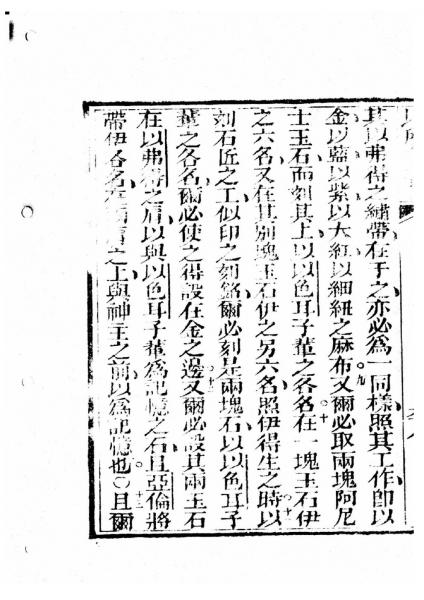 其以弗得之繡帶在于之亦必為一同樣照其工作即以
金以藍以紫以大紅以細紐之麻布九又爾必取兩塊阿尼
士玉石而刻其上以以色耳子輩之各名十在一塊玉石伊
之六名又在其別塊玉石伊之另六名照伊得生之時十一以
刻石匠之工似印之刻銘爾必刻是兩塊石以以色耳子
輩之各名爾必使之得設在金之邊十二又爾必設其兩玉石
在以弗得之肩以與以色耳子輩為記憶之石且亞倫將
帶伊各名在兩肩之上與神主之前以為記憶也〇十三且爾